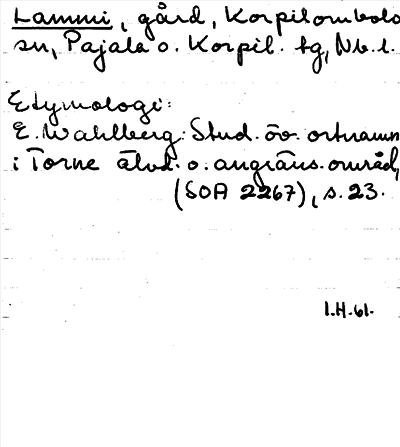 Lammi, gård, Korpilombolo
sn, Pajala o. Korpil. tg, Nb. l.
Etymologi:
E. Wahlberg: Stud. öv. ortnamn
i Torne älvd. o. angräns. område,
(SOA 2267), s. 23.
I.H.61.